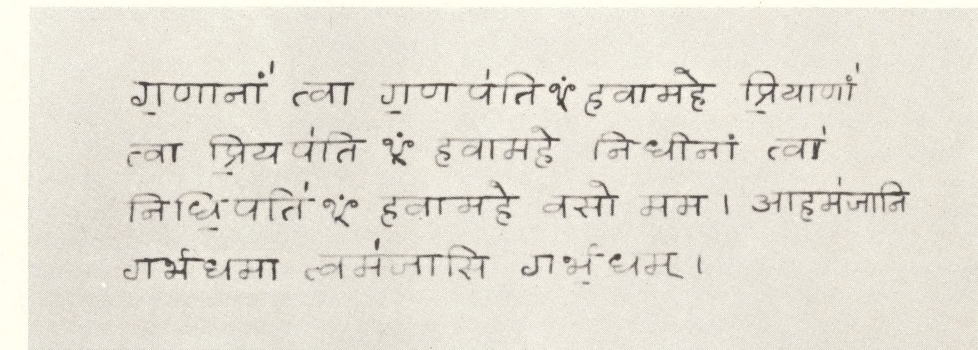 ग॒णानां॑ त्वा ग॒ण प॑ति ꣳ हवामहे प्रि॒याणां॑
त्वा प्रि॒य प॑ति ꣳ हवामहे निधीनां त्वा॑
निधि॒पति॑ ꣳ हवामहे वसो मम । आहम॑जानि
गर्भधमा त्वम॑जासि गर्भ॒धम् ।